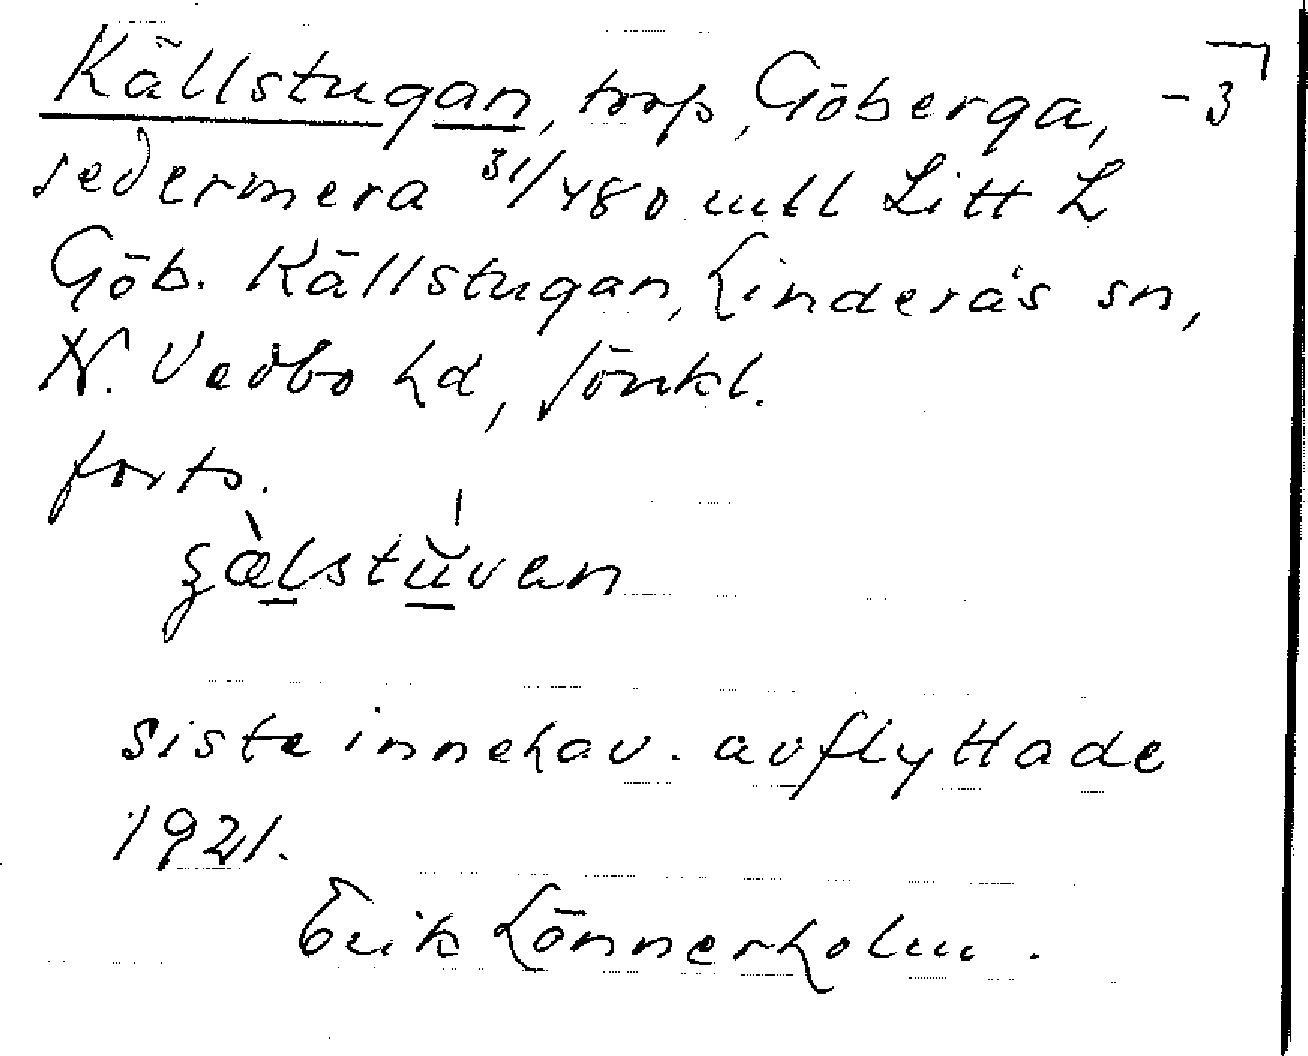 Källstugan, torp, Göberga, -3
sedermera 31/480 mtl Litt L
Göb. Källstugan, Linderås sn,
N. Vedbo hd, Jönkl.
forts.
siste innehav. avflyttade
1921.
Erik Lönnerholm.